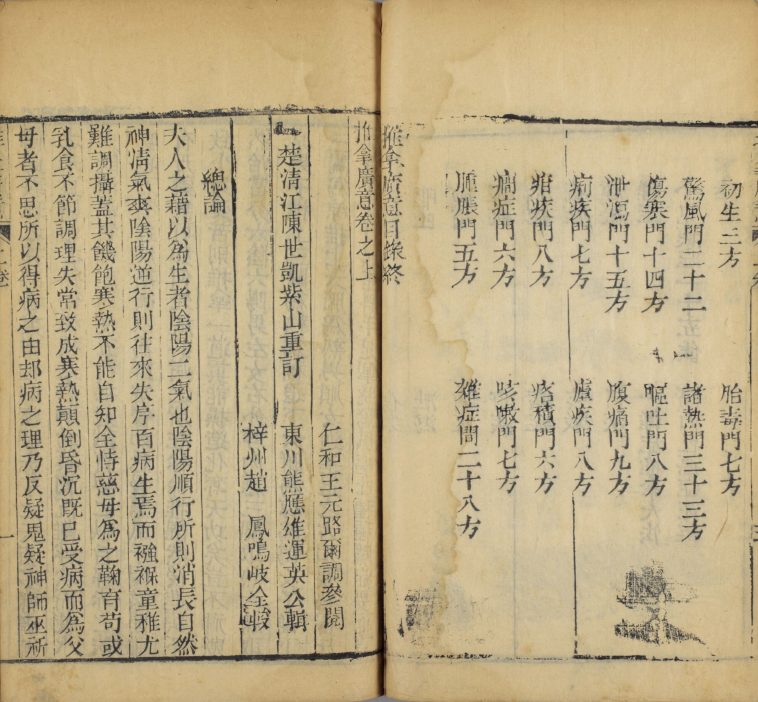 初生三方　胎毒門七方
驚風門二十二　諸熱門三十三方
傷寒門十四方　嘔吐門八方
泄瀉門十五方　腹痛門九方
痢疾門七方　瘧疾門八方
疳疾門八方　痞積門六方
癇症門六方　咳嗽門七方
腫脹門五方　雜症間二十八方
推拿廣意目錄終
推拿廣意卷之上
仁和王元路爾調參閱
楚清江陳世凱紫山重訂　東川熊應雄運英公輯
梓州趙　鳳鳴岐仝
總論
夫人之藉以為生者陰陽二氣也陰陽順行所則消長自然
神清氣爽陰陽道行則往來失序百病生焉而襁褓童稚尤
難調攝蓋其饑飽寒熱不能自知全恃慈母為之鞠育苟或
乳食不節調理失常致成寒熱顛倒昏沉既已受病而為父
母者不思所以得病之由却病之理乃反疑鬼疑神師巫祈